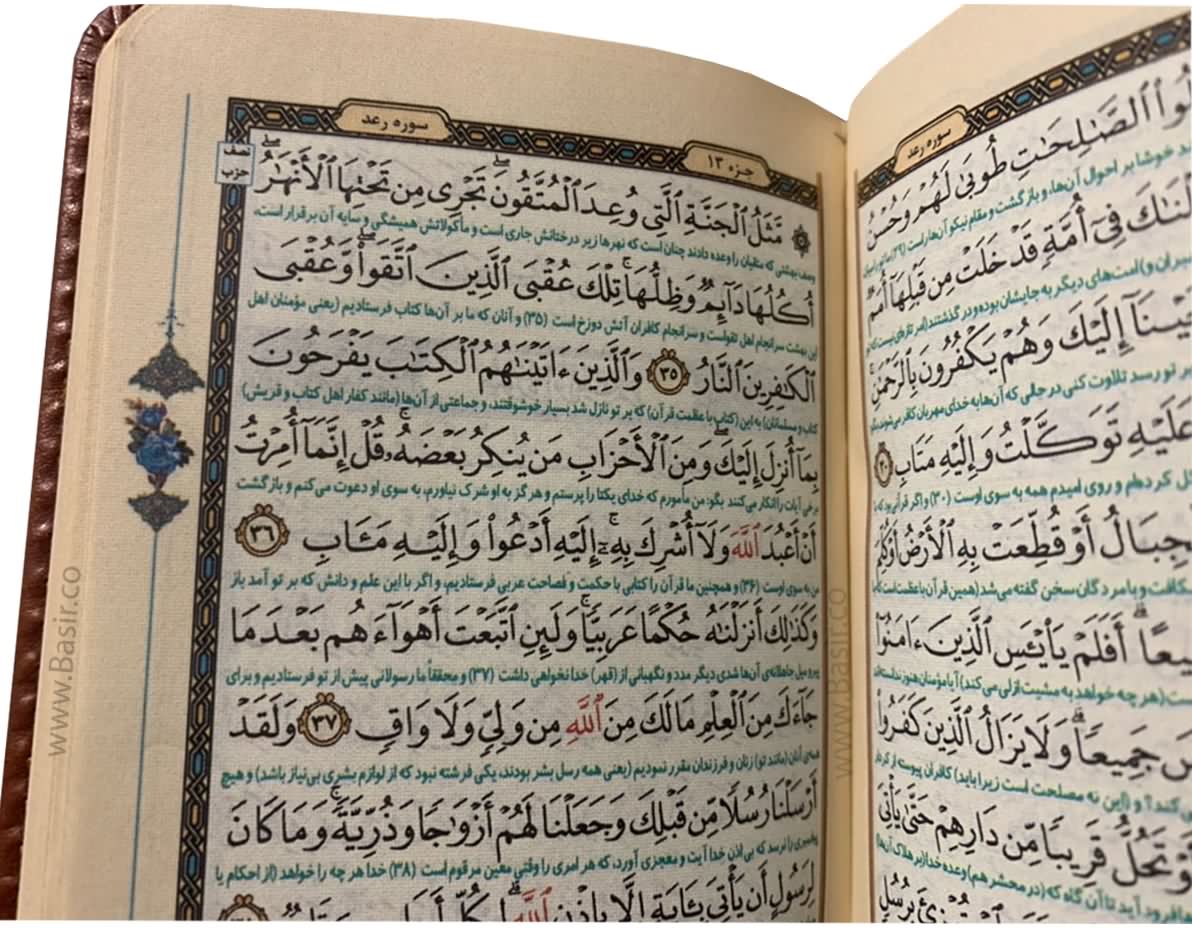 لُوا۟ ٱلصَّـٰلِحَـٰتِ طُوبَىٰ لَهُمْ وَحُسْنُ
سوره رعد
خوشا بر احوال آن‌ها، و بازگشت و مقام نیکو آن‌ها راست (۲۹)
فِىٓ أُمَّةٍ قَدْ خَلَتْ مِن قَبْلِهَآ أُمَمٌ
امت‌های دیگر به جایشان بوده و در گذشتند
إِلَيْكَ وَهُمْ يَكْفُرُونَ بِٱلرَّحْمَـٰنِ
بر تو رسد تلاوت کنی در حالی که آن‌ها به خدای مهربان کافر می‌شوند
عَلَيْهِ تَوَكَّلْتُ وَإِلَيْهِ مَتَابِ ۳۰
کرده‌ام و روی امیدم همه به سوی اوست (۳۰) و اگر قرآنی بود که
جِبَالُ أَوْ قُطِّعَتْ بِهِ ٱلْأَرْضُ أَوْ كُلِّمَ
و با مردگان سخن گفته می‌شد (همین قرآن با عظمت است
أَفَلَمْ يَا۟يْـَٔسِ ٱلَّذِينَ ءَامَنُوٓا۟
(هر چه خواهد به مشیت ازلی می‌کند) آیا مؤمنان هنوز ندانسته‌اند
جَمِيعًا وَلَا يَزَالُ ٱلَّذِينَ كَفَرُوا۟
می‌کند؟ و (این نه مصلحت است زیرا باید) کافران پیوسته از
أَوْ تَحُلُّ قَرِيبًا مِّن دَارِهِمْ حَتَّىٰ يَأْتِىَ
فرود آید تا آن گاه که (در محشر هم) وعده خدا
سوره رعد
جزء ۱۳
نصف
حزب
مَّثَلُ ٱلْجَنَّةِ ٱلَّتِى وُعِدَ ٱلْمُتَّقُونَ ۖ تَجْرِى مِن تَحْتِهَا ٱلْأَنْهَـٰرُ ۖ
وصف بهشتی که متقیان را وعده دادند چنان است که نهرها زیر درختانش جاری است و مأکولاتش همیشگی و سایه آن برقرار است،
أُكُلُهَا دَآئِمٌ وَظِلُّهَا ۚ تِلْكَ عُقْبَى ٱلَّذِينَ ٱتَّقَوا۟ ۖ وَّعُقْبَى
این بهشت سرانجام اهل تقواست و سرانجام کافران آتش دوزخ است (۳۵) و آنان که ما بر آن‌ها کتاب فرستادیم (یعنی مؤمنان اهل
ٱلْكَـٰفِرِينَ ٱلنَّارُ ۳۵ وَٱلَّذِينَ ءَاتَيْنَـٰهُمُ ٱلْكِتَـٰبَ يَفْرَحُونَ
کتاب و مسلمانان) به این (کتاب با عظمت قرآن) که بر تو نازل شد بسیار خوشوقتند، و جماعتی از آن‌ها (مانند کفار اهل کتاب و قریش)
بِمَآ أُنزِلَ إِلَيْكَ ۖ وَمِنَ ٱلْأَحْزَابِ مَن يُنكِرُ بَعْضَهُۥ ۚ قُلْ إِنَّمَآ أُمِرْتُ
برخی آیات را انکار می‌کنند بگو: من مأمورم که خدای یکتا را پرستم و هرگز به او شرک نیاورم، به سوی او دعوت می‌کنم و بازگشت
أَنْ أَعْبُدَ ٱللَّهَ وَلَآ أُشْرِكَ بِهِۦٓ ۚ إِلَيْهِ أَدْعُوا۟ وَإِلَيْهِ مَـَٔابِ ۳۶
من به سوی اوست (۳۶) و همچنین ما قرآن را کتابی با حکمت و فصاحت عربی فرستادیم، و اگر با این علم و دانش که بر تو آمد باز
وَكَذَٰلِكَ أَنزَلْنَـٰهُ حُكْمًا عَرَبِيًّا ۚ وَلَئِنِ ٱتَّبَعْتَ أَهْوَآءَهُم بَعْدَ مَا
پیرو میل جاهلانه‌ی آن‌ها شدی دیگر مدد و نگهبانی از (قهر) خدا نخواهی داشت (۳۷) و محققاً ما رسولانی پیش از تو فرستادیم و برای
جَآءَكَ مِنَ ٱلْعِلْمِ مَا لَكَ مِنَ ٱللَّهِ مِن وَلِىٍّ وَلَا وَاقٍ ۳۷ وَلَقَدْ
همه‌ی آنان (مانند تو) زنان و فرزندان مقرر نمودیم (یعنی همه رسل بشر بودند، یکی فرشته نبود که از لوازم بشری بی‌نیاز باشد) و هیچ
أَرْسَلْنَا رُسُلًا مِّن قَبْلِكَ وَجَعَلْنَا لَهُمْ أَزْوَٰجًا وَذُرِّيَّةً ۚ وَمَا كَانَ
پیغمبری را نرسد که بی‌اذن خدا آیت و معجزی آورد، که هر امری را وقتی معین مرقوم است (۳۸) خدا هر چه را خواهد (از احکام یا
لِرَسُولٍ أَن يَأْتِىَ بِـَٔايَةٍ إِلَّا بِإِذْنِ ٱللَّهِ ۗ لِكُلِّ أَجَلٍ
www.Basir.co
www.Basir.co